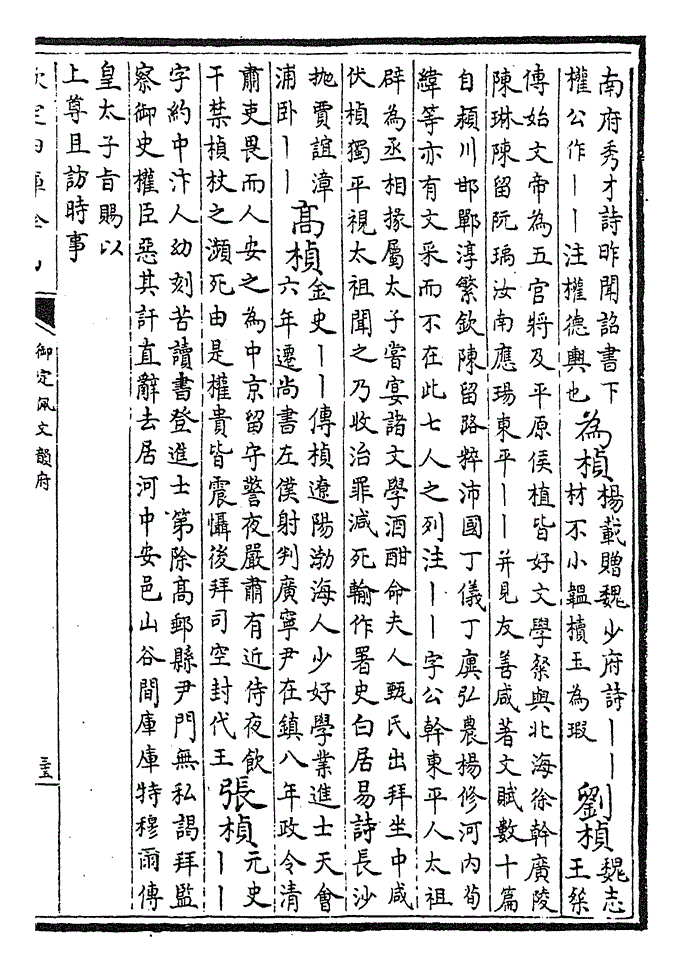 南府秀才詩昨聞詔書下
權公作丨丨注權德輿也
為楨
楊載贈魏少府詩丨丨
材不小韞櫝玉為瑕
劉楨
魏志
王粲
傳始文帝為五官將及平原侯植皆好文學粲與北海徐幹廣陵
陳琳陳留阮瑀汝南應瑒東平丨丨并見友善咸著文賦數十篇
自潁川邯鄲淳繁欽陳留路粹沛國丁儀丁廙弘農楊修河內荀
緯等亦有文采而不在此七人之列注丨丨字公幹東平人太祖
辟為丞相掾屬太子嘗宴諸文學酒酣命夫人甄氏出拜坐中咸
伏楨獨平視太祖聞之乃收治罪減死輸作署吏白居易詩長沙
拋賈誼漳
浦卧丨丨
高楨
金史丨丨傳楨遼陽渤海人少好學業進士天會
六年遷尚書左僕射判廣寧尹在鎮八年政令清
肅吏畏而人安之為中京留守警夜嚴肅有近侍夜飲
干禁楨杖之瀕死由是權貴皆震懾後拜司空封代王
張楨
元史
丨丨
字約中汴人幼刻苦讀書登進士第除高郵縣尹門無私謁拜監
察御史權臣惡其訐直辭去居河中安邑山谷間庫庫特穆爾傳
皇太子旨賜以
上尊且訪時事
御定佩文韻府